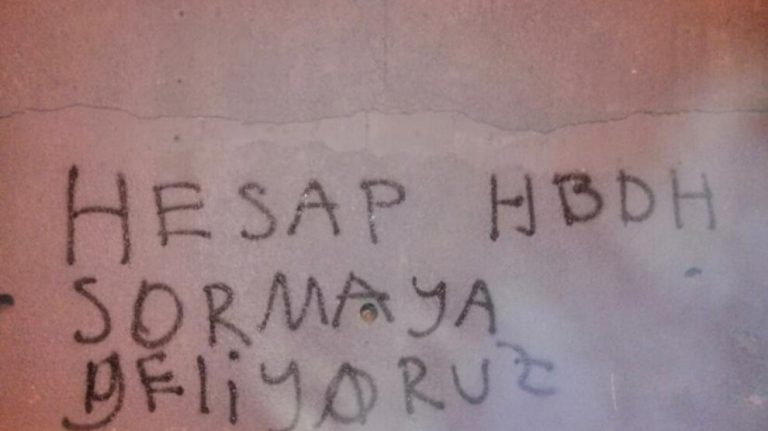 HESAP HBDH
SORMAYA
GELİYORUZ